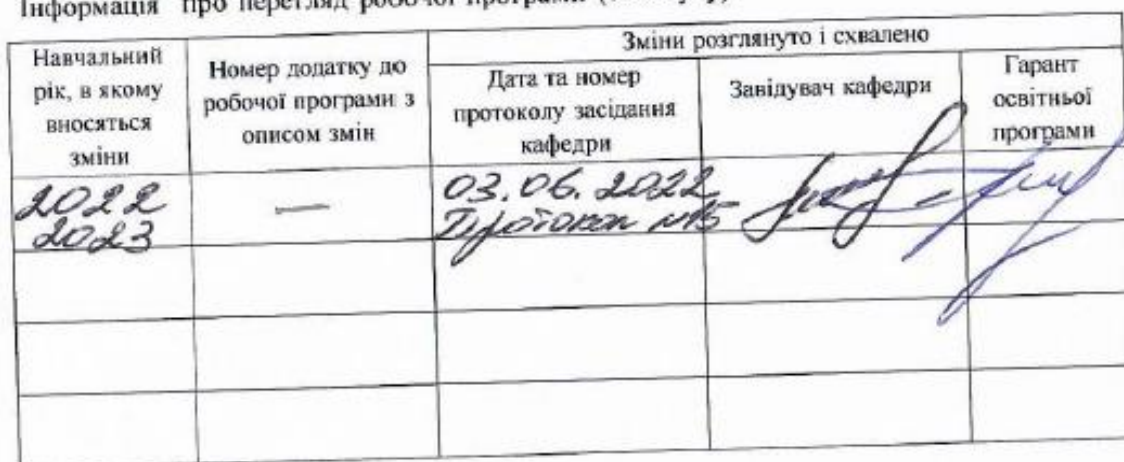 Інформація про перегляд робочої програми
Навчальний рік, в якому вносяться зміни
Номер додатку до робочої програми з описом змін
Зміни розглянуто і схвалено
Дата та номер протоколу засідання кафедри
Завідувач кафедри
Гарант освітньої програми
2022
2023
—
03.06.2022
Протокол №15